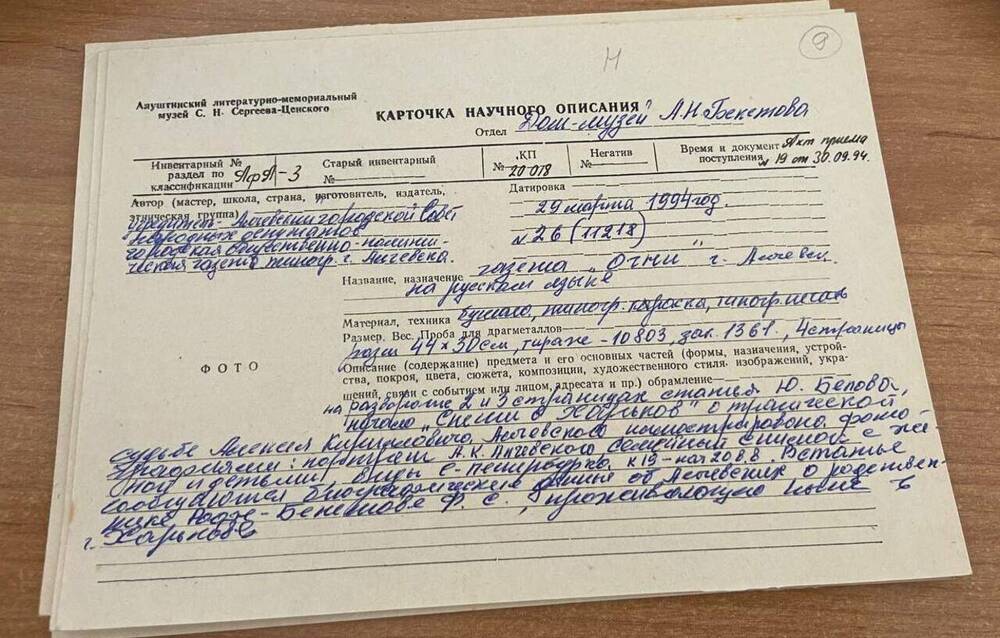 Н
9
Алуштинский литературно-мемориальный
музей С. Н. Сергеева-Ценского
КАРТОЧКА НАУЧНОГО ОПИСАНИЯ
Отдел "Дом-музей А.Н. Бекетова
Инвентарный №
раздел по
классификации АфА-3
Старый инвентарный
№
КП
№ 20 018
Негатив
№
Время и документ Акт приема
поступления № 19 от 30.09.94.
Автор (мастер, школа, страна, изготовитель, издатель,
этническая группа)
Учредитель - Алчевский городской Совет
народных депутатов
городская общественно-полити-
ческая газета типогр. г. Алчевска.
Датировка
29 марта 1994 год.
№ 26 (11218)
Название, назначение газета "Огни" г. Алчевск
на русском языке
Материал, техника бумага, типогр. краска, типогр. печать
Размер. Вес. Проба для драгметаллов
44 × 30 см, тираж - 10803, зак. 1361, 4 страницы
Описание (содержание) предмета и его основных частей (формы, назначения, устрой-
ства, покроя, цвета, сюжета, композиции, художественного стиля. изображений, укра-
шений, связи с событием или лицом, адресата и пр.) обрамление
ФОТО
на развороте 2 и 3 страницах статья Ю. Белова,
начало о трагической
судьбе Алексея Кирилловича Алчевского иллюстрирована фото
графиями: портрет А.К. Алчевского семейный снимок с же
ной и детьми. Виды С-Петербурга к 19 - нач 20 в в. В статье
сообщаются биографические данные об Алчевских о родствен-
нике Бекетове Ф. С., проживающего ныне в
г. Харькове